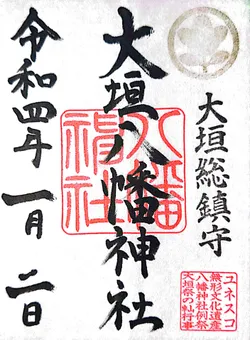 大垣総鎮守
大垣八幡神社
八幡
神社
令和四年一月二日
ユネスコ
無形文化遺産
八幡神社例祭
大垣祭の軕行事